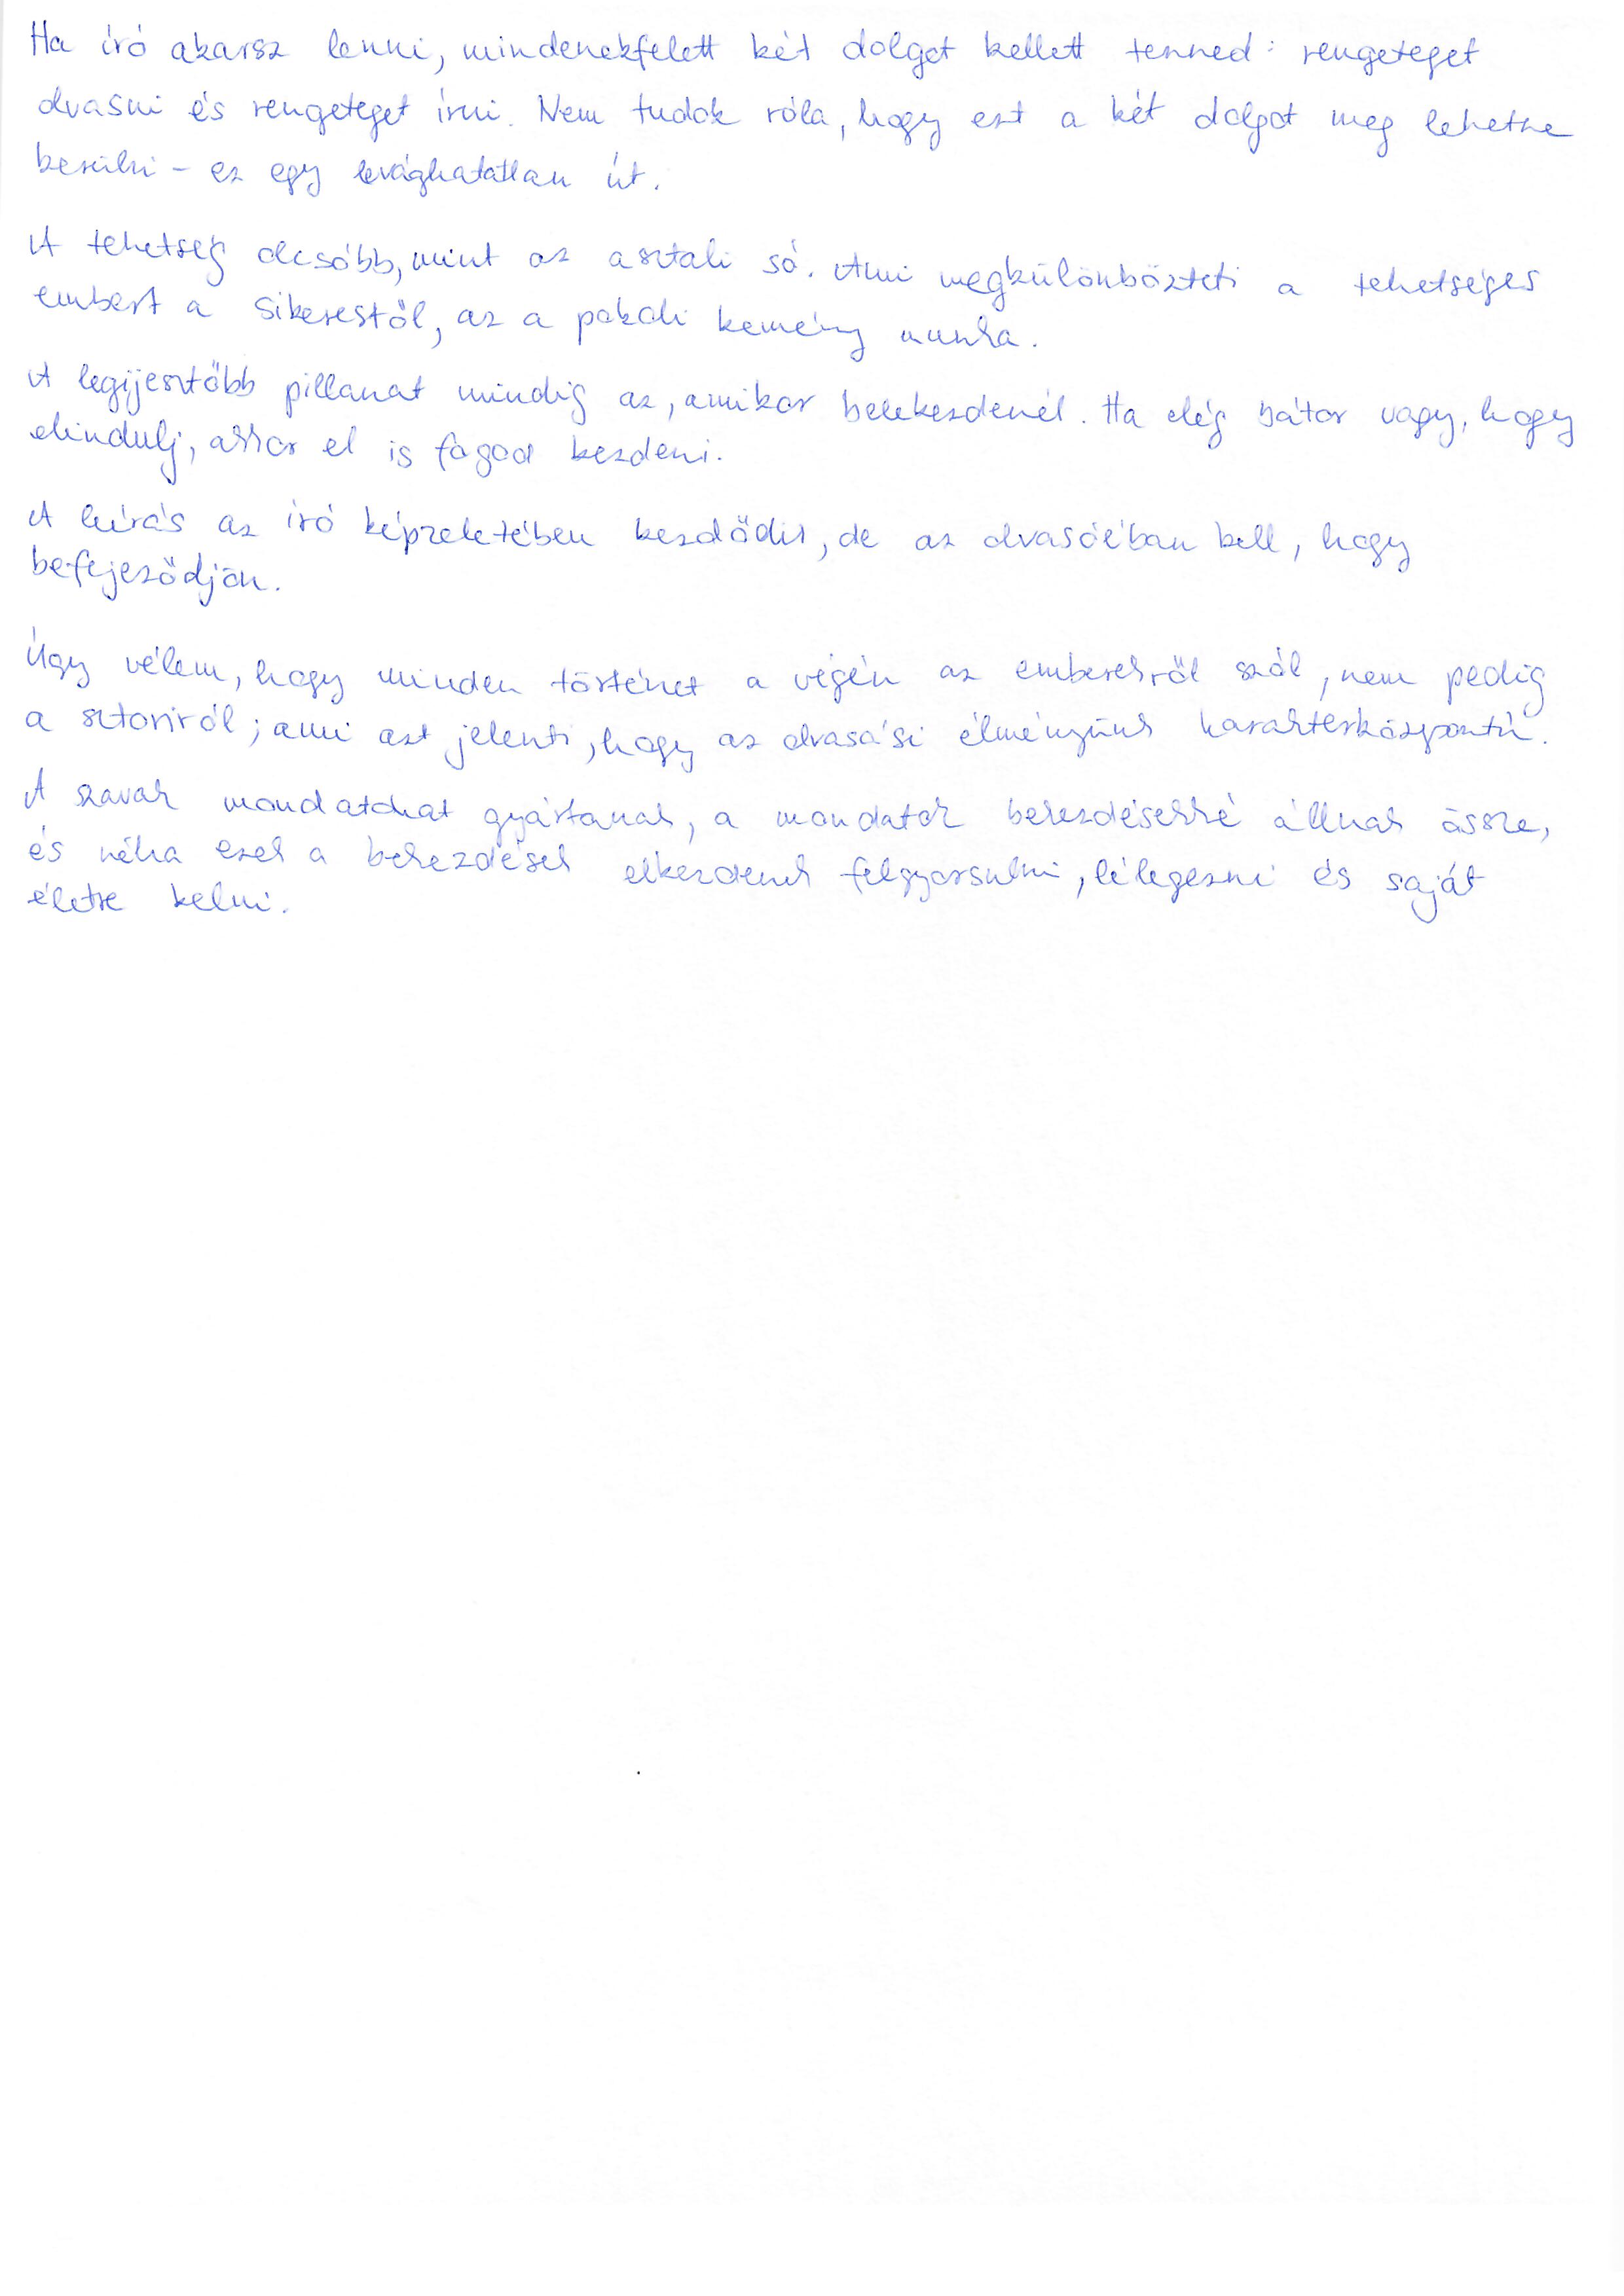 Ha író akarsz lenni, mindenekfelett két dolgot kellett tenned: rengeteget
olvasni és rengeteget írni. Nem tudok róla, hogy ezt a két dolgot meg lehetne
kerülni - ez egy levághatatlan út.
A tehetség olcsóbb, mint az asztali só. Ami megkülönbözteti a tehetséges
embert a sikerestől, az a pokoli kemény munka.
A legijesztőbb pillanat mindig az, amikor belekezdenél. Ha elég bátor vagy, hogy
elindulj, akkor el is fogod kezdeni.
A leírás az író képzeletében kezdődik, de az olvasóéban kell, hogy
befejeződjön.
Úgy vélem, hogy minden történet a végén az emberekről szól, nem pedig
a sztoriról; ami azt jelenti, hogy az olvasási élményünk karakterközpontú.
A szavak mondatokat gyártanak, a mondatok bekezdésekké állnak össze,
és néha ezek a bekezdések elkezdenek felgyorsulni, lélegezni és saját
életre kelni.